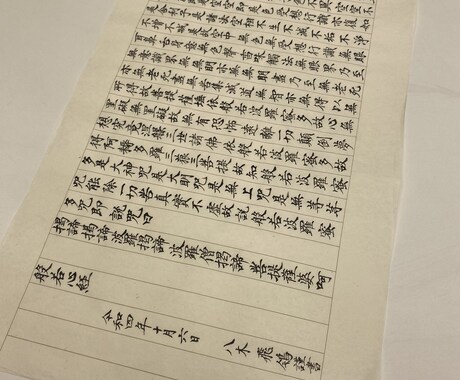 不異空空不
即是空空即是色受想行識亦復如
是舎利子是諸法空相不生不滅不垢不浄
不増不減是故空中無色無受想行識無眼
耳鼻舌身意無色聲香味觸法無眼界乃至
無意識界無無明亦無無明盡乃至無老死
亦無老死盡無苦集滅道無智亦無得以無
所得故菩提薩埵依般若波羅蜜多故心無
罣礙無罣礙故無有恐怖遠離一切顛倒夢
想究竟涅槃三世諸佛依般若波羅蜜多故
得阿耨多羅三藐三菩提故知般若波羅蜜
多是大神呪是大明呪是無上呪是無等等
呪能除一切苦真實不虚故説般若波羅蜜
多呪即説呪曰
揭諦揭諦波羅揭諦 波羅僧揭諦 菩提薩婆呵
般若心経
令和四年十月六日
八木 飛鴿謹書